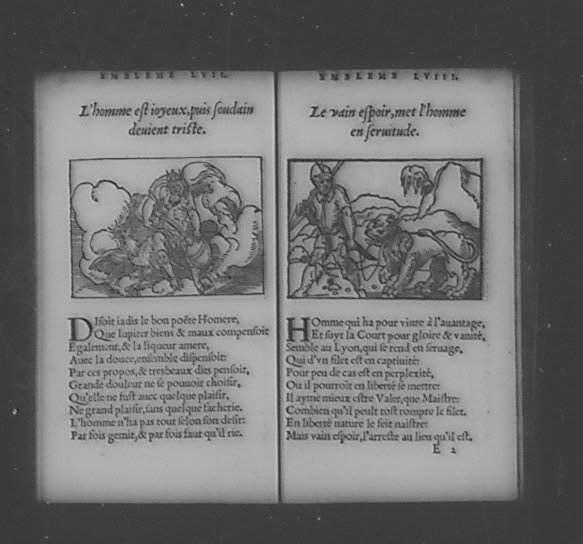 EMBLEME LVII.
L'homme est ioyeux, puis soudain
deuient triste.
DIsoit iadis le bon poëte Homere,
Que Iupiter biens & maux compensoit
Egalement, & la liqueur amere,
Auec la douce, ensemble dispensoit:
Par ces propos, & tresbeaux dits pensoit,
Grande douleur ne se pouuoir choisir,
Qu'elle ne fust auec quelque plaisir,
Ne grand plaisir, sans quelque facherie.
L'homme n'ha pas tout selon son desir:
Par fois gemit, & par fois faut qu'il rie.
EMBLEME LVIII.
Le vain espoir, met l'homme
en seruitude.
HOmme qui ha pour viure à l'auantage,
Et suyt la Court pour gloire & vanité,
Semble au Lyon, qui se rend en seruage,
Qui d'vn filet est en captiuité:
Pour peu de cas est en perplexité,
Ou il pourroit en liberté se mettre:
Il ayme mieux estre Valet, que Maistre:
Combien qu'il peult tost rompre le filet.
En liberté nature le feit naistre:
Mais vain espoir, l'arreste au lieu qu'il est.
E 2